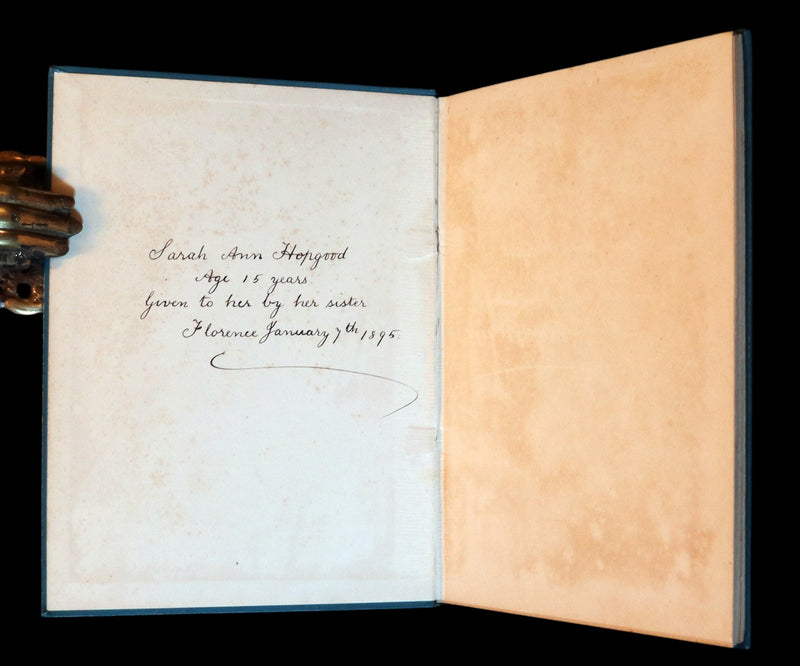 Sarah Ann Hopgood
Age 15 years
Given to her by her sister
Florence January 7th 1895.